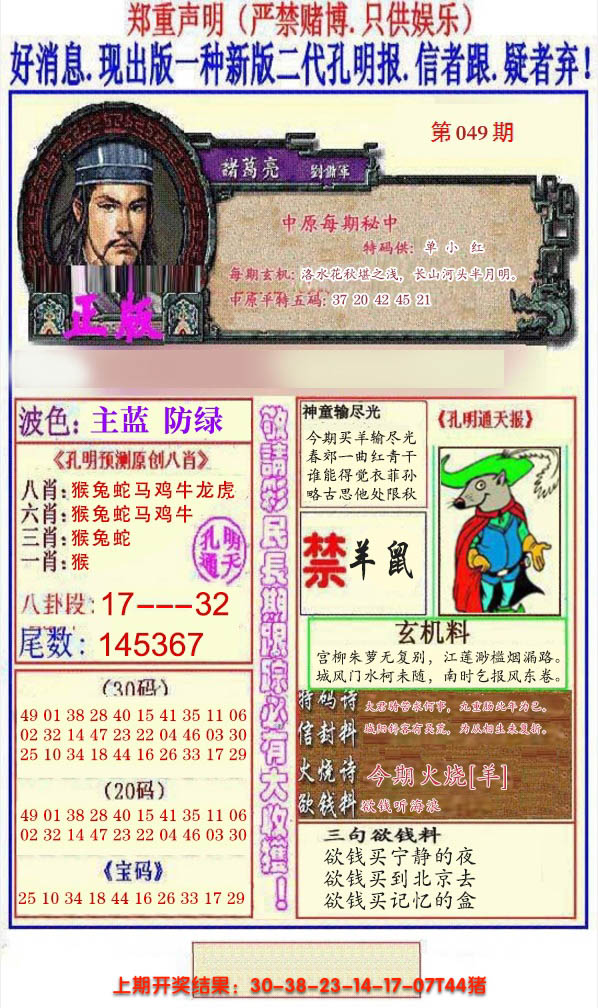 郑重声明（严禁赌博.只供娱乐）
好消息.现出版一种新版二代孔明报.信者跟.疑者弃！
第049期
諸葛亮 劉備軍
中原每期秘中
特码供：单 小 红
每期玄机：洛水花秋堪之浅，长山河头半月明。
中原平特五码：37 20 42 45 21
正版
波色：主蓝 防绿
《孔明预测原创八肖》
八肖：猴兔蛇马鸡牛龙虎
六肖：猴兔蛇马鸡牛
三肖：猴兔蛇
一肖：猴
孔明
通天
八卦段：17---32
尾数：145367
（30码）
49 01 38 28 40 15 41 35 11 06
02 32 14 47 23 22 04 46 03 30
25 10 34 18 44 16 26 33 17 29
（20码）
49 01 38 28 40 15 41 35 11 06
02 32 14 47 23 22 04 46 03 30
《宝码》
25 10 34 18 44 16 26 33 17 29
敬請彩民長期跟踪必有大收獲！
神童输尽光
今期买羊输尽光
春郊一曲红青干
谁能得觉衣菲孙
略古思他处限秋
《孔明通天报》
禁 羊鼠
玄机料
宫柳朱萝无复别，江莲渺槛烟漏路。
城风门水柯未随，南时乞报风东卷。
特码诗
信封料
火烧诗 今期火烧[羊]
欲钱料 欲钱听海浪
三句欲钱料
欲钱买宁静的夜
欲钱买到北京去
欲钱买记忆的盒
上期开奖结果：30-38-23-14-17-07T44猪